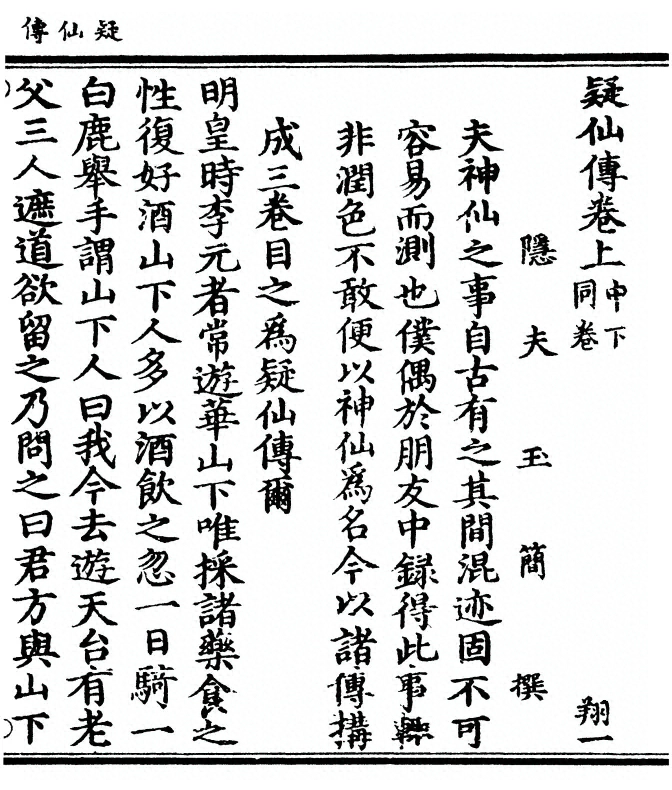 疑仙傳
疑仙傳卷上 中下同卷 翔一
隱夫玉簡撰
夫神仙之事自古有之其間混迹固不可
容易而測也僕偶於朋友中録得此事
非潤色不敢便以神仙爲名今以諸傳搆
成三卷目之爲疑仙傳爾
明皇時李元者常遊華山下唯採諸藥食之
性復好酒山下人多以酒飲之忽一日騎一
白鹿舉手謂山下人曰我今去遊天台有老
父三人遮道欲留之乃問之曰君方與山下